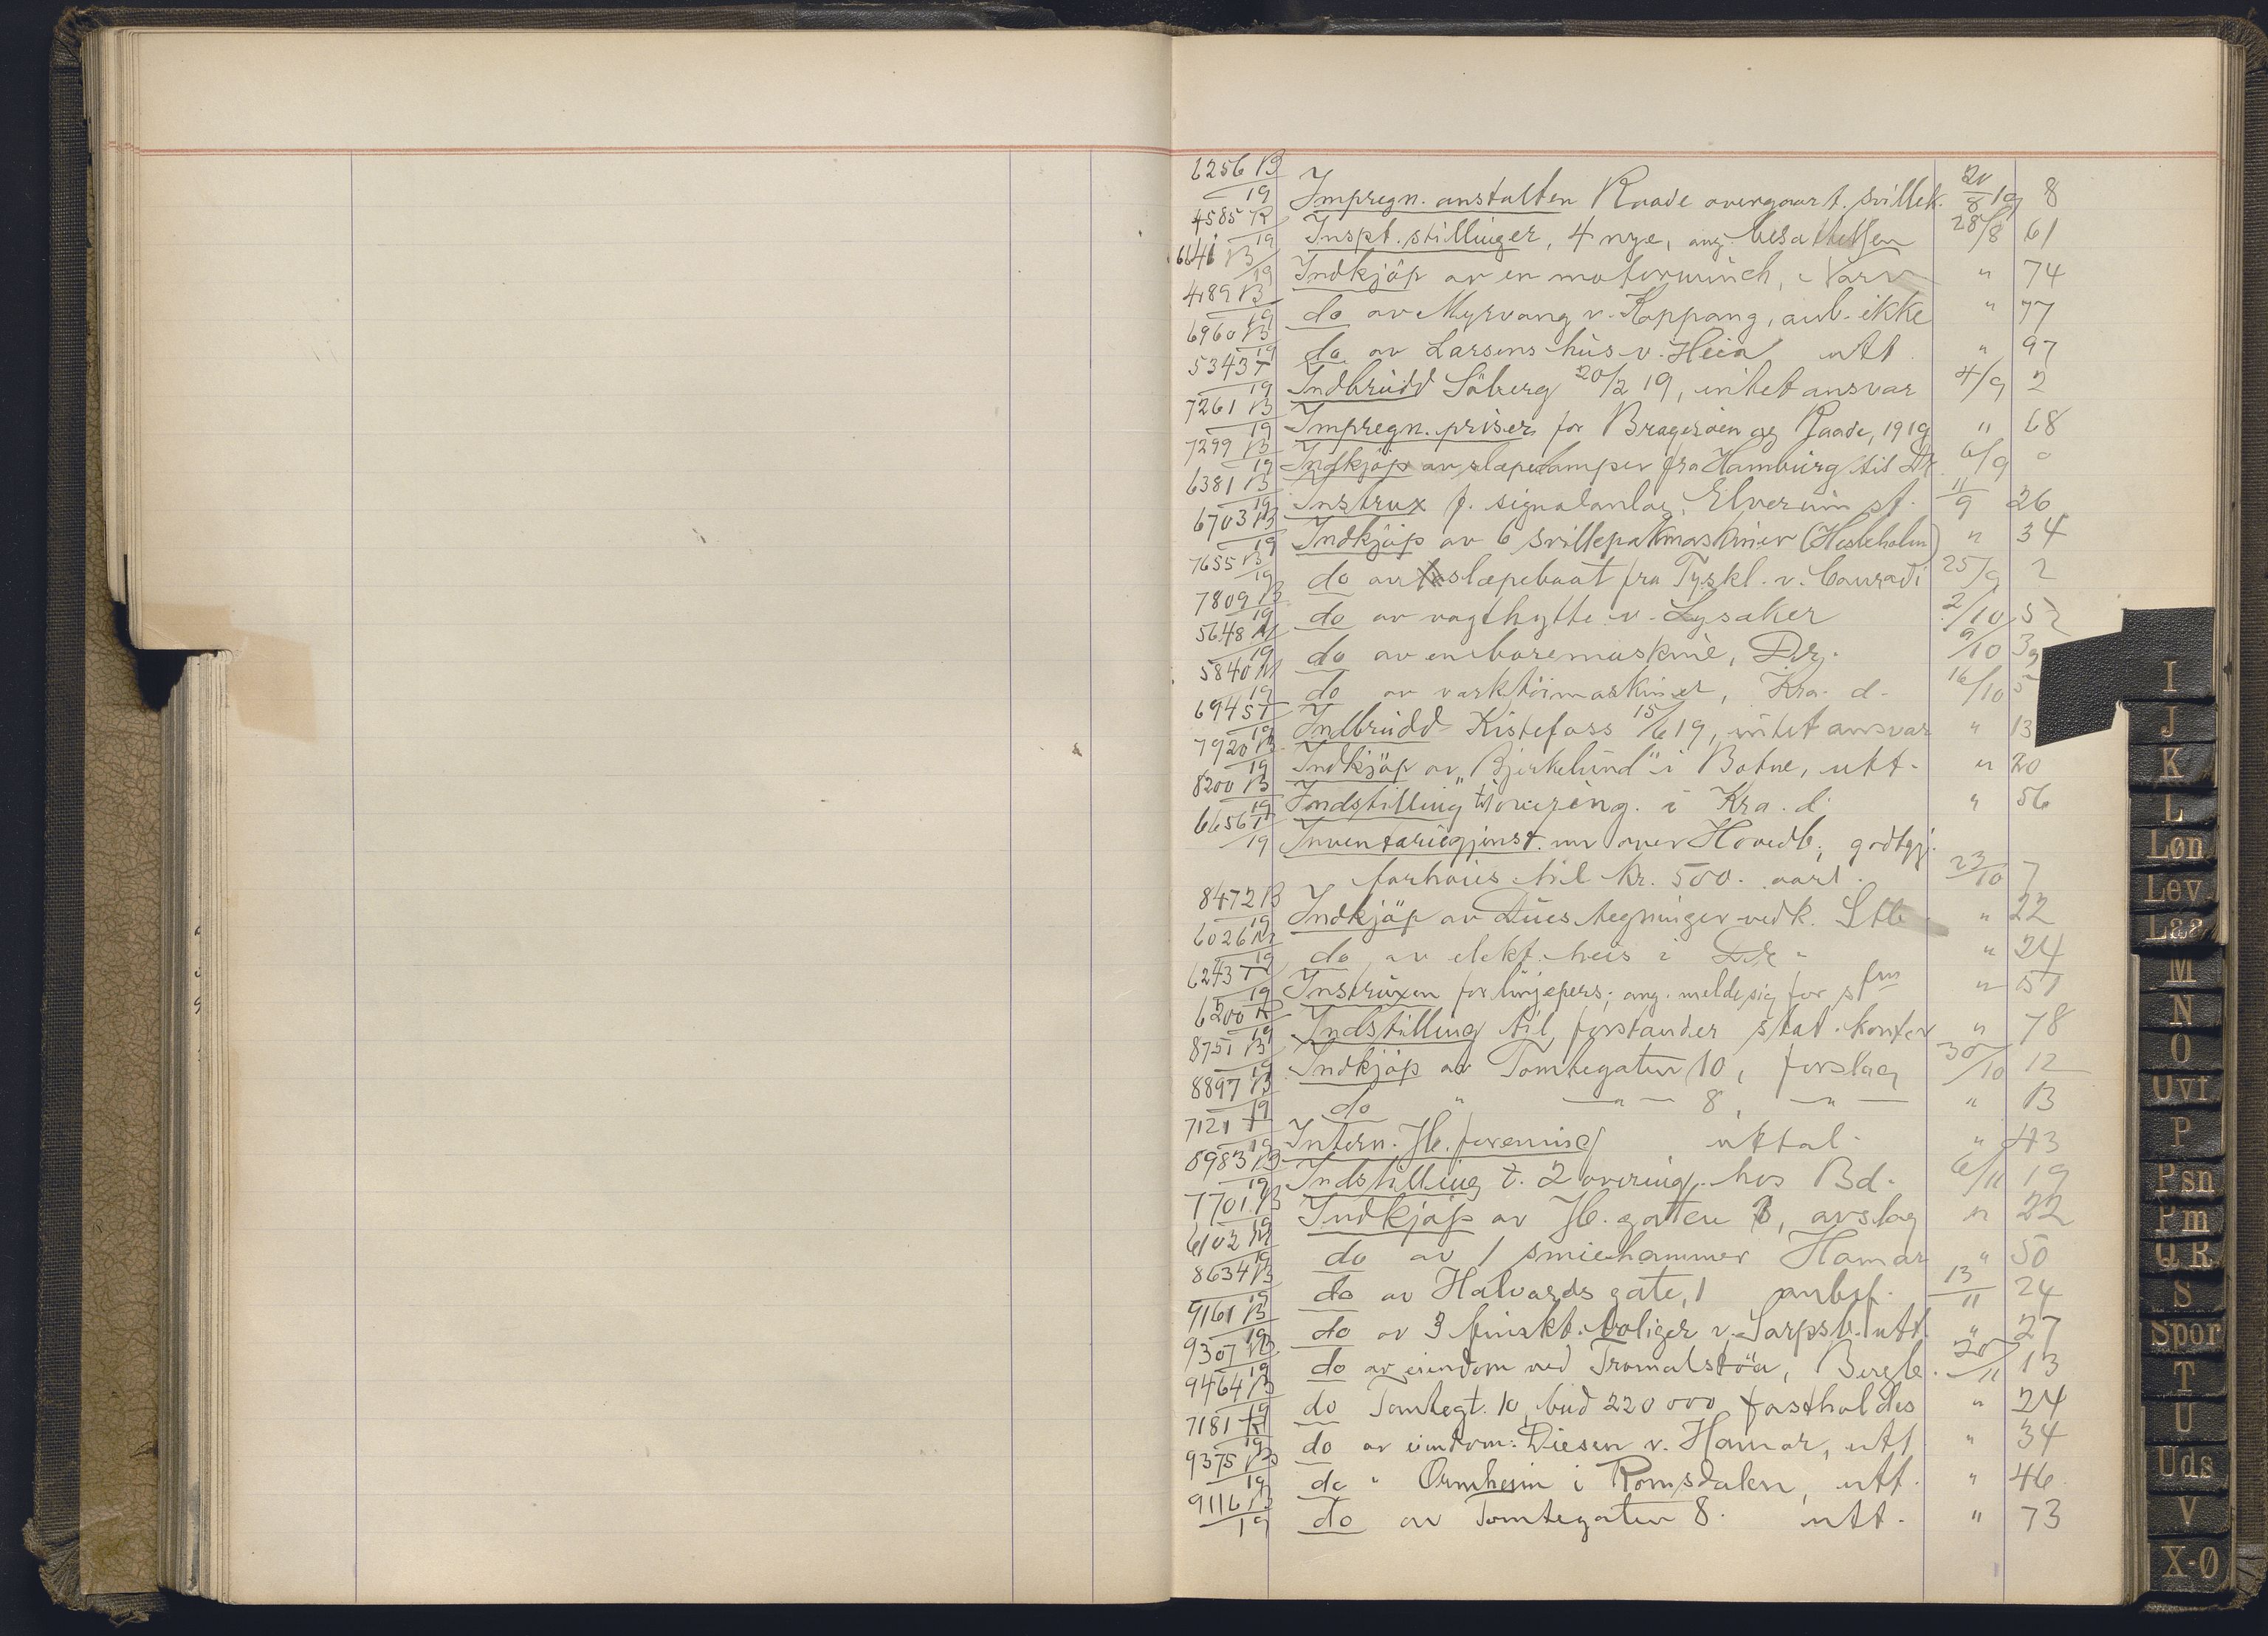 6256 B/19 Impregn. anstalten Raade overgaar t. svillek. 21/8 19 8
4585 R/19 Inspt. stillinger, 4 nye, ang. besættelsen 28/8 61
6641 B/19 Indkjöp av en motorwinch, Narv " 74
4189 B/19 do av Myrvang v. Koppang, anb. ikke " 77
6960 B/19 do av Larsens hus v. Heia utt. " 97
5343 T/19 Indbrudd Söberg 20/2 19, intet ansvar 4/9 2
7261 B/19 Impregn. priser for Brageröen og Raade, 1919 " 68
7299 B/19 Indkjöp av slæpedamper fra Hamburg til Dr. 6/9 0
6381 B/19 Instrux f. signalanlæg, Elverum st. 11/9 26
6703 B/19 Indkjöp av 6 svillepakmaskiner (Hesleholm) " 34
7655 B/19 do av slæpebaat fra Tyskl. v. Conradi 25/9 2
7809 B/19 do av vagthytte v. Lysaker 2/10 52
5648 M/19 do av en boremaskine, Dr. 9/10 39
5840 M/19 do av verktöimaskiner, Kra. d. 16/10 5
6945 T/19 Indbrudd Kistefoss 15/6 19, intet ansvar " 13
7920 B/19 Indkjöp av "Bjerkelund" i Botne, utt. " 20
8200 B/19 Indstilling til overing. i Kra. d. " 56
6656 T/19 Inventariegjenst. over Hovedb., godtgj.
forhöies til kr. 500. aarl. 23/10 7
8472 B/19 Indkjöp av Dues tegninger vedk. Stb " 22
6026 M/19 do av elekt. heis i Dr. " 24
6243 T/19 Instruxen for linjepers. ang. melde sig for sfm " 51
6200 R/19 Indstilling til forstander stat. kontor " 78
8751 B/19 Indkjöp av Tomtegaten 10, forslag 30/10 12
8897 B/19 do " —"— 8, —"— " 13
7121 T/19 Intern. Jb. forening uttal. " 43
8983 B/19 Indstilling t. 2 avering. hos Bd. 6/11 19
7701 B/19 Indkjöp av Jb. gaten 3, avslag " 22
6102 M/19 do av 1 smiehammer Hamar " 50
8634 B/19 do av Halvards gate, 1 anbef. 13/11 24
9161 B/19 do av 3 finskt. boliger v. Sarpsb. utt. " 27
9307 B/19 do av eiendom ved Tromalstöa, Bergb. 20/11 13
9464 B/19 do Tomtegt. 10, bud 220 000 fastholdes " 24
7181 R/19 do av eiendom: Diesen v. Hamar, utt. " 34
9375 B/19 do " Ormheim i Romsdalen, utt. " 46
9116 B/19 do av Tomtegaten 8. utt. " 73
I
J
K
L
Løn
Lev.
Laa
M
N
O
Ovf
P
Psn
Pm
Q R
S
Spor
T
U
Uds
V
X-Ø